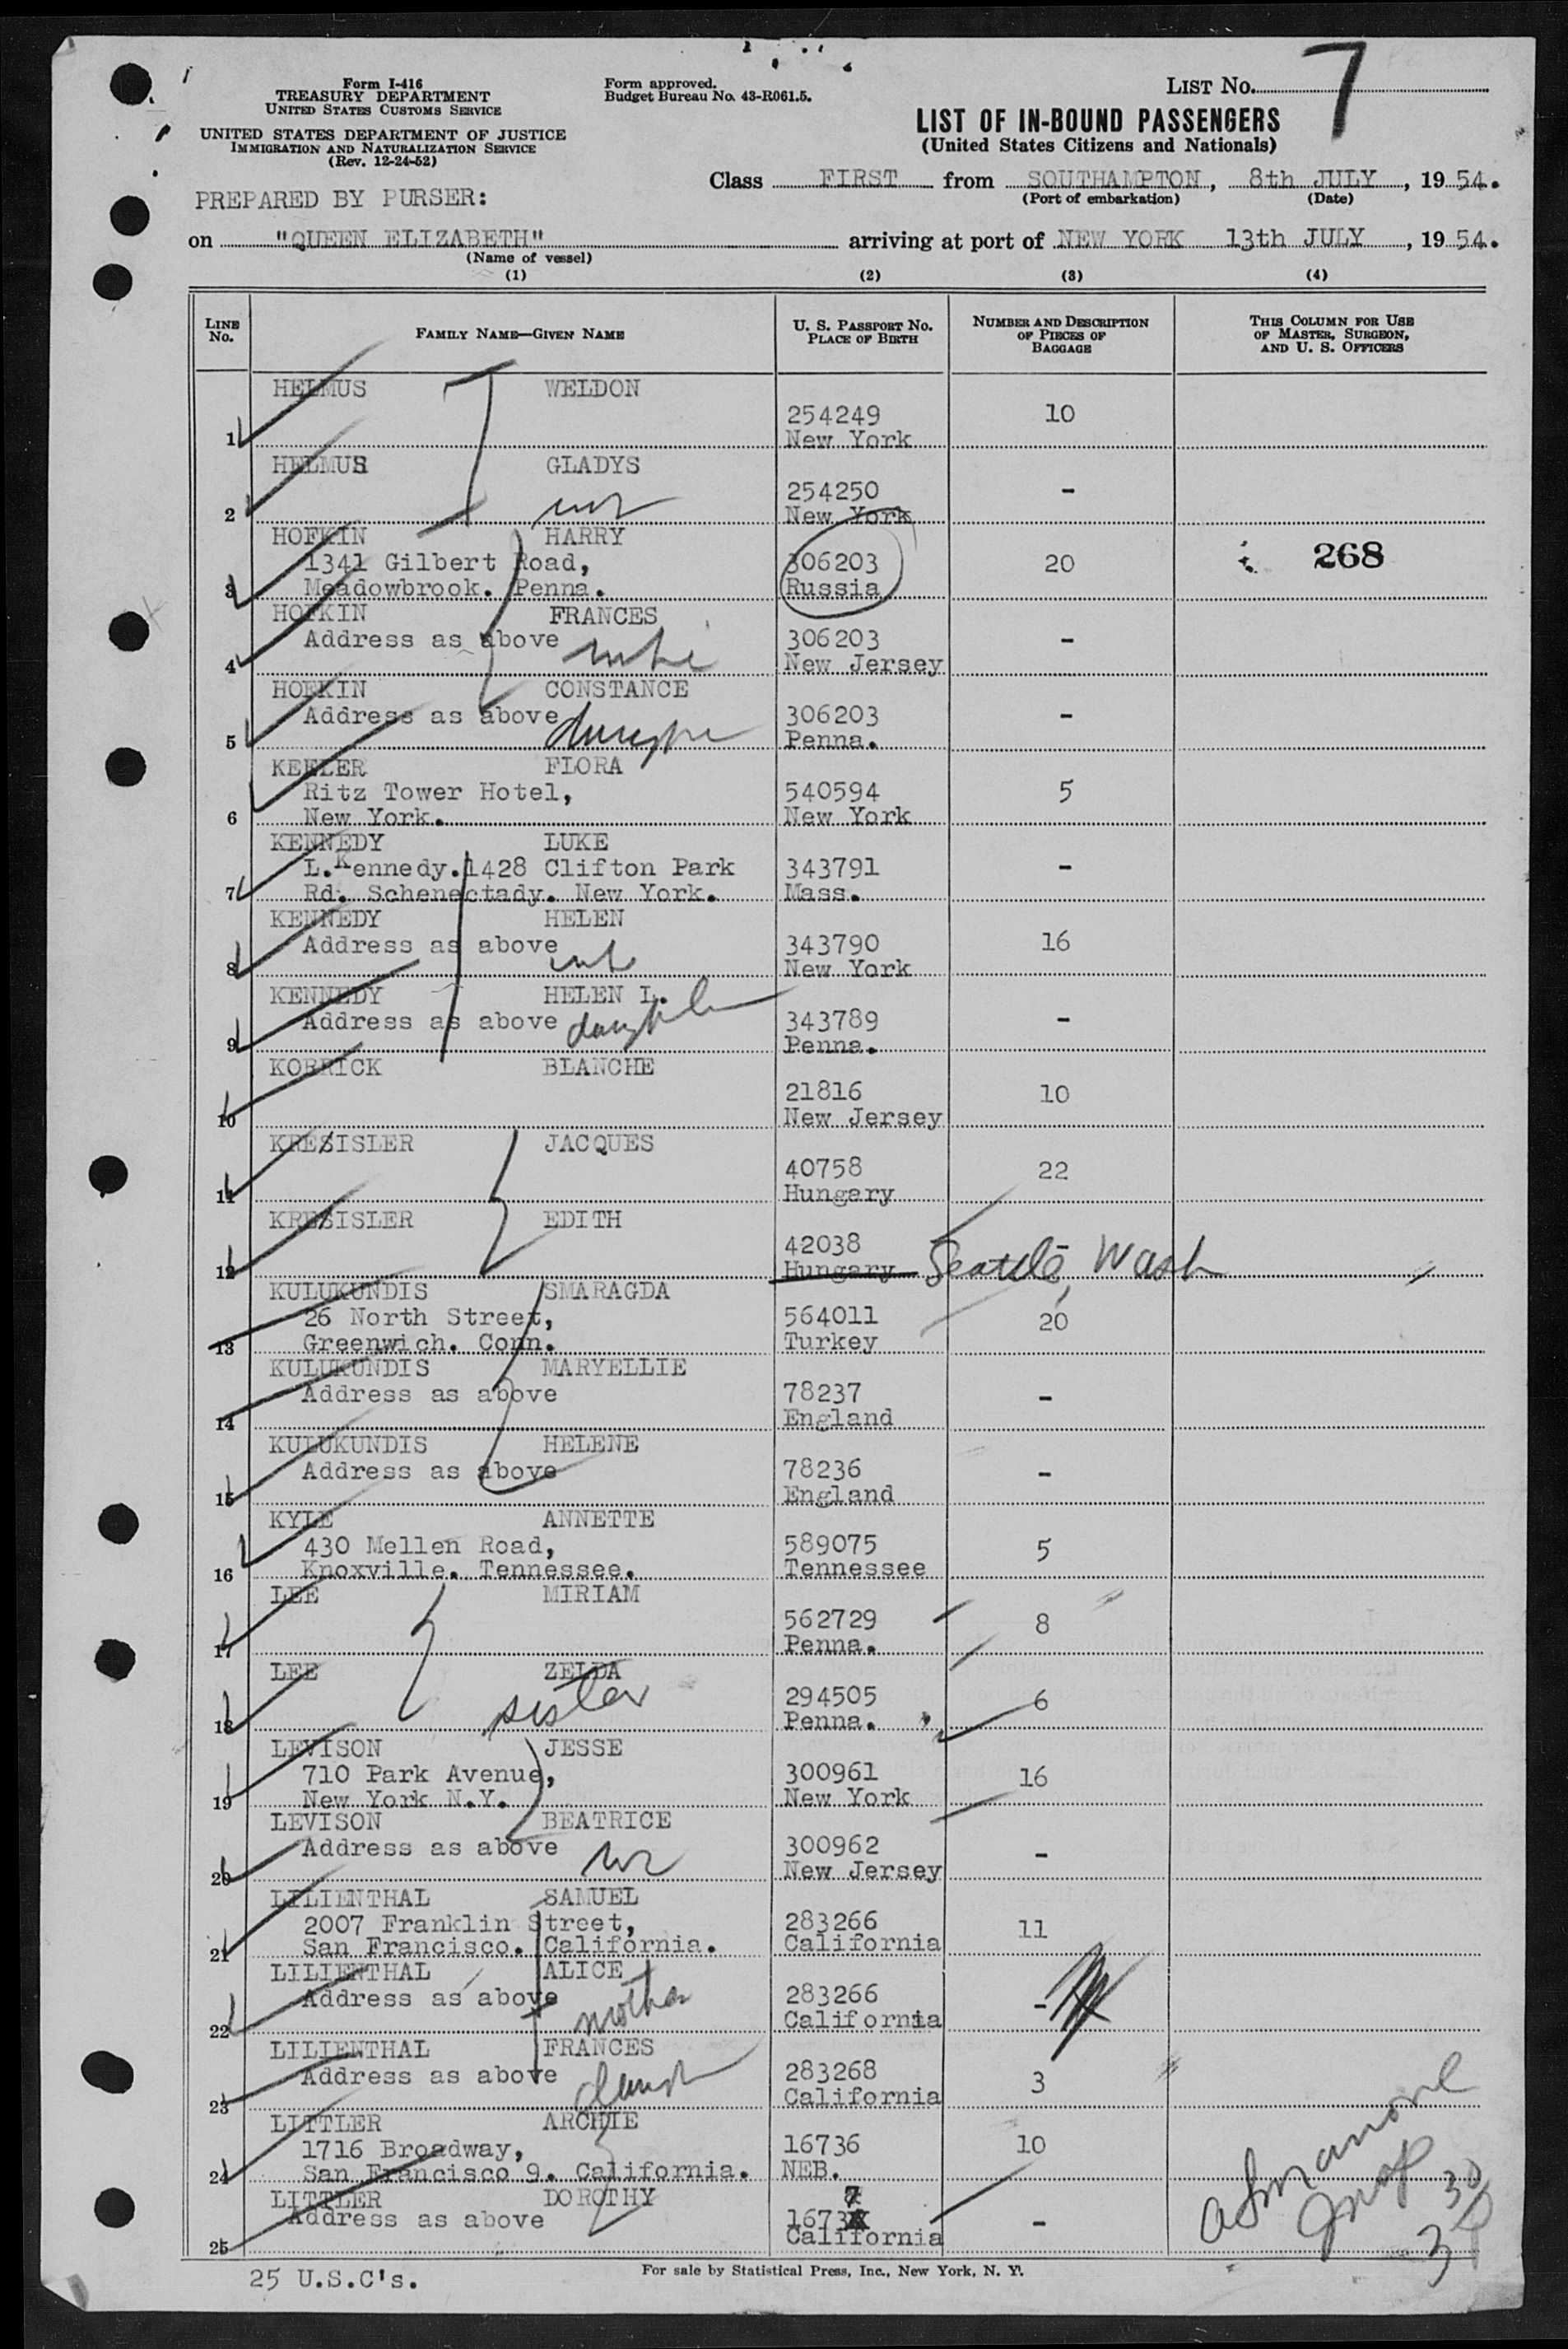 Form I-416
TREASURY DEPARTMENT
UNITED STATES CUSTOMS SERVICE
UNITED STATES DEPARTMENT OF JUSTICE
IMMIGRATION AND NATURALIZATION SERVICE
(Rev. 12-24-52)
Form approved.
Budget Bureau No. 43-R061.5.
LIST No. 7
LIST OF IN-BOUND PASSENGERS
(United States Citizens and Nationals)
Class FIRST from SOUTHAMPTON, 8th JULY, 1954.
(Port of embarkation) (Date)
PREPARED BY PURSER:
on "QUEEN ELIZABETH" arriving at port of NEW YORK 13th JULY, 1954.
(Name of vessel)
(1) (2) (3) (4)
LINE No. FAMILY NAME—GIVEN NAME U. S. PASSPORT NO. PLACE OF BIRTH NUMBER AND DESCRIPTION OF PIECES OF BAGGAGE THIS COLUMN FOR USE OF MASTER, SURGEON, AND U. S. OFFICERS
HELMUS WELDON
254249 10
1 New York
HELMUS GLADYS
254250 -
2 New York
HOFKIN HARRY
1341 Gilbert Road, 306203 20 268
3 Meadowbrook. Penna. Russia
HOFKIN FRANCES
Address as above wife 306203 -
4 New Jersey
HOFKIN CONSTANCE
Address as above daughter 306203 -
5 Penna.
KEELER FLORA
Ritz Tower Hotel, 540594 5
6 New York. New York
KENNEDY LUKE
L.Kennedy.1428 Clifton Park 343791 -
7 Rd. Schenectady. New York. Mass.
KENNEDY HELEN
Address as above 343790 16
8 New York
KENNEDY HELEN L.
Address as above daughter 343789 -
9 Penna.
KORRICK BLANCHE
21816 10
10 New Jersey
KRESISLER JACQUES
40758 22
11 Hungary
KRESISLER EDITH
42038 -
12 Hungary Seattle, Wash
KULUKUNDIS SMARAGDA
26 North Street, 564011 20
13 Greenwich. Conn. Turkey
KULUKUNDIS MARYELLIE
Address as above 78237 -
14 England
KULUKUNDIS HELENE
Address as above 78236 -
15 England
KYLE ANNETTE
430 Mellen Road, 589075 5
16 Knoxville. Tennessee. Tennessee
LEE MIRIAM
562729 8
17 Penna.
LEE ZELDA
sister 294505 6
18 Penna.
LEVISON JESSE
710 Park Avenue, 300961 16
19 New York N.Y. New York
LEVISON BEATRICE
Address as above 300962 -
20 New Jersey
LILIENTHAL SAMUEL
2007 Franklin Street, 283266 11
21 San Francisco. California. California
LILIENTHAL ALICE
Address as above mother 283266 -
22 California
LILIENTHAL FRANCES
Address as above 283268 3
23 California
LITTLER ARCHIE
1716 Broadway, 16736 10
24 San Francisco 9. California. NEB.
LITTLER DOROTHY
Address as above 16737 -
25 California
25 U.S.C's.
For sale by Statistical Press, Inc., New York, N. Y.